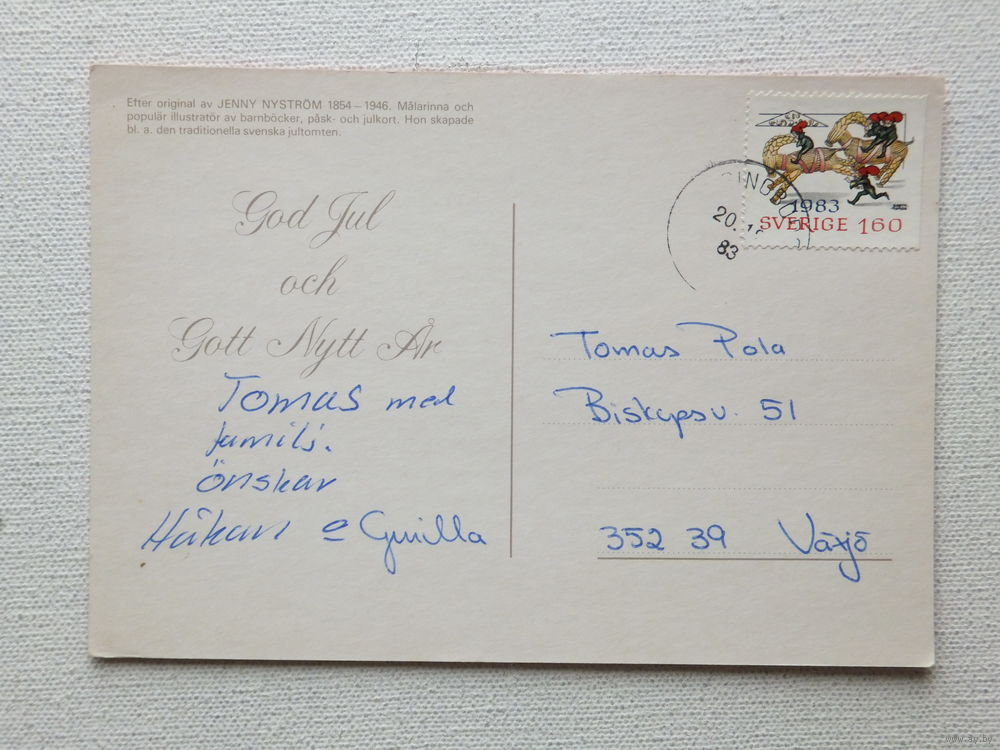 Efter original av JENNY NYSTRÖM 1854–1946. Målarinna och
populär illustratör av barnböcker, påsk- och julkort. Hon skapade
bl. a. den traditionella svenska jultomten.
God Jul
och
Gott Nytt År
Tomas med
familj.
önskar
Håkan o Gunilla
1983
SVERIGE 160
20.12
83
Tomas Pola
Biskopsv. 51
352 39 Växjö
www.ay.by